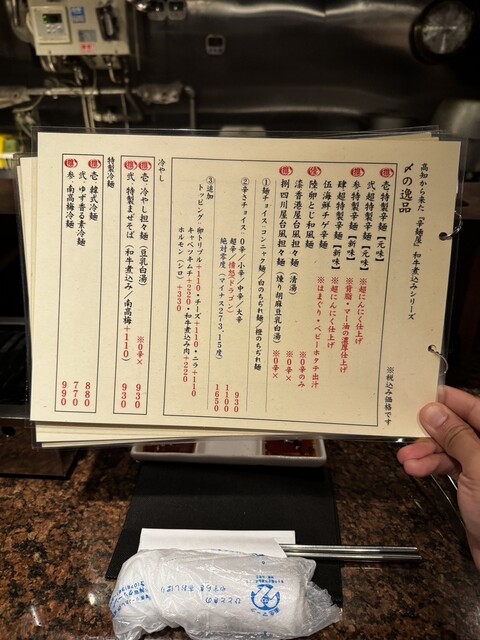 高知から来た「辛麺屋」和牛煮込みシリーズ
〆の逸品
※税込み価格です
壱 特製辛麺【元味】
弐 超特製辛麺【元味】 ※超にんにく仕上げ
参 特製辛麺【新味】 ※背脂・マー油の濃厚仕上げ
肆 超特製辛麺【新味】 ※超にんにく仕上げ
伍 海鮮チゲ辛麺 ※はまぐり・ベビーホタテ出汁
陸 卵とじ和風麺 ※0辛のみ
漆 香港屋台風担々麺(清湯) ※0辛×
捌 四川屋台風担々麺(煉り胡麻豆乳白湯) ※0辛×
①麺チョイス:コンニャク麺/白のちぢれ麺/橙のちぢれ麺
②辛さチョイス:0辛/小辛/中辛/大辛 930
超辛/憤怒ドラゴン) 1100
絶対零度(マイナス273.15度) 1650
③追加
トッピング・卵トリプル+110・チーズ+110・ニラ+110
キャベツキムチ+220・和牛煮込み肉+220
ホルモン(シロ)+330
冷やし
壱 冷やし担々麺(豆乳白湯) ※0辛× 930
弐 特製まぜそば(和牛煮込み/南高梅+110) 930
特製冷麺
壱 韓式冷麺 880
弐 ゆず香る素冷麺 770
参 南高梅冷麺 990
ひとときの
やすらぎ おしぼり